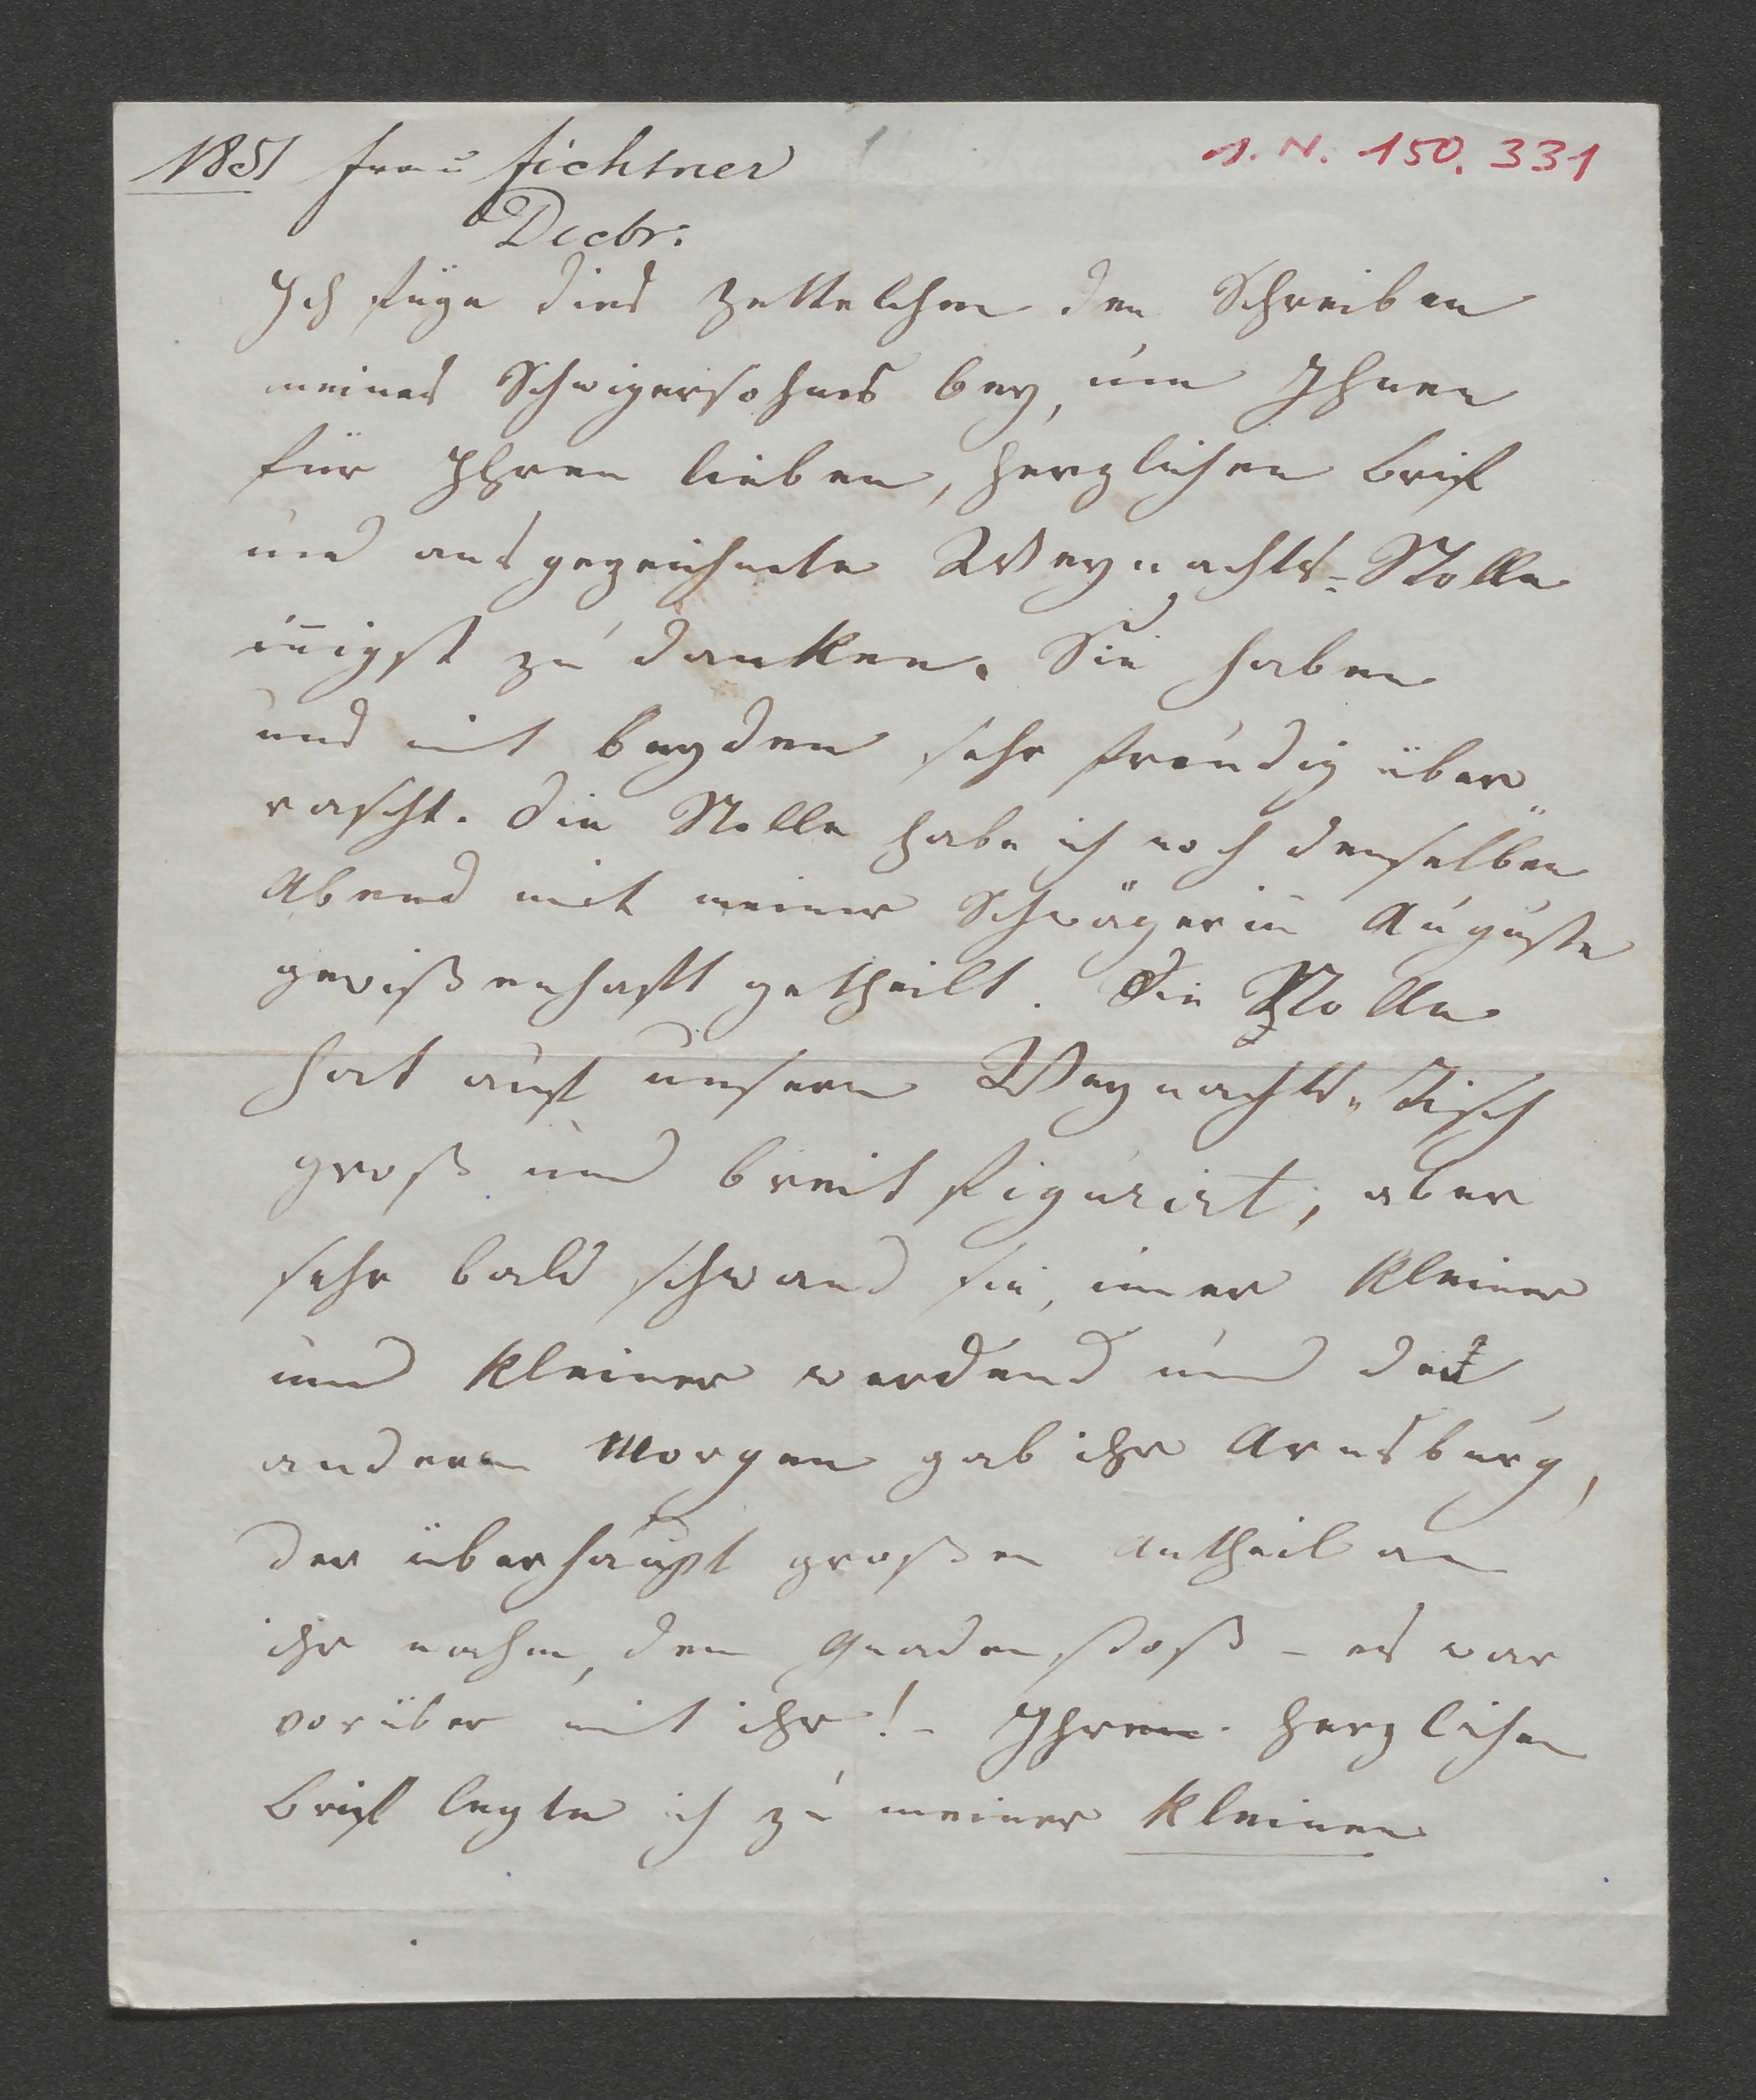 1851 Frau Fichtner
I. N. 150.331
Decbr:
Ich füge dies Zettelchen den Schreiben
meines Schwigersohnes bey, um Ihnen
für Ihren lieben, herzlichen Brief
und ausgezeichnete Weynachts-Stolle
inigst zu danken. Sie haben
uns mit beyden sehr freudig über„
rascht. Die Stolle habe ich noch denselben
Abend mit meiner Schwägerin Auguste
gewißenhaft getheilt. Die Stolle
hat auf unsern Weynachts„Tisch
groß und breit figurirt, aber
sehr bald schwand sie, imer kleiner
und kleiner werdend und den
andern Morgen gab ihr Arnsburg,
der überhaupt großen Antheil an
ihr nahm, den Gnadenstoß – es war
vorüber mit ihr! – Ihren herzlichen
Brief legte ich zu meiner kleinen